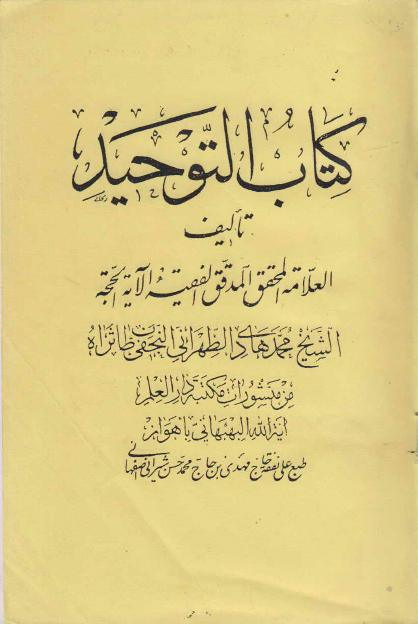 كتاب التوحيد
تأليف
العلامة المحقق المدقق الفقيه الآية الحجة
الشيخ محمد هادي الطهراني النجفي طاب ثراه
من منشورات مكتبة دار العلم
آية الله البهبهاني باهواز
طبع علی نفقة حاج مهدي بن حاج محمد حسن شيرازی اصفهانی